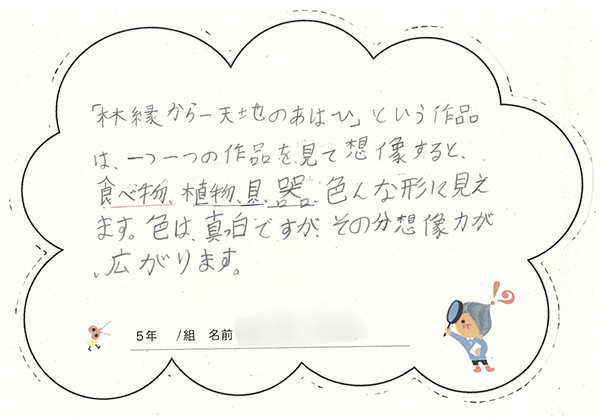 「林縁から―天地のあはひ」という作品
は、一つ一つの作品を見て想像すると、
食べ物、植物、貝、器、色んな形に見え
ます。色は、真っ白ですが、その分想像力が
広がります。
5年 1組 名前